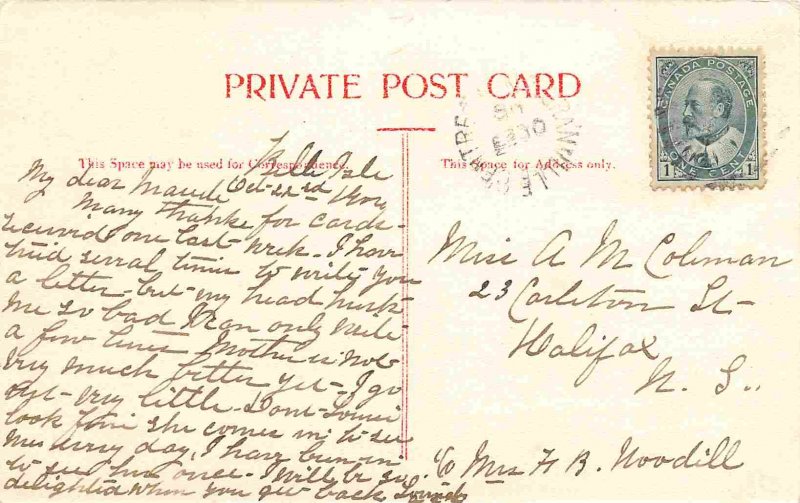 PRIVATE POST CARD
This Space may be used for Correspondence.
This Space for Address only.
CANADA POSTAGE
ONE CENT
1
1
GRANVILLE CENTRE
Belle Isle
Oct - 22nd
My dear Maude
Many thanks for cards -
received one last week - I have
tried several times to write you
a letter - but my head hurts
me so bad I can only write
a few lines - Mother is not
very much better yet - I go
out very little - Dont
look for she comes in to see
day, I have been in
to see once - I will be so
delighted when you get back
Miss A M Coleman
23 Carleton St -
Halifax
N. S.
c/o Mrs H B. Woodill